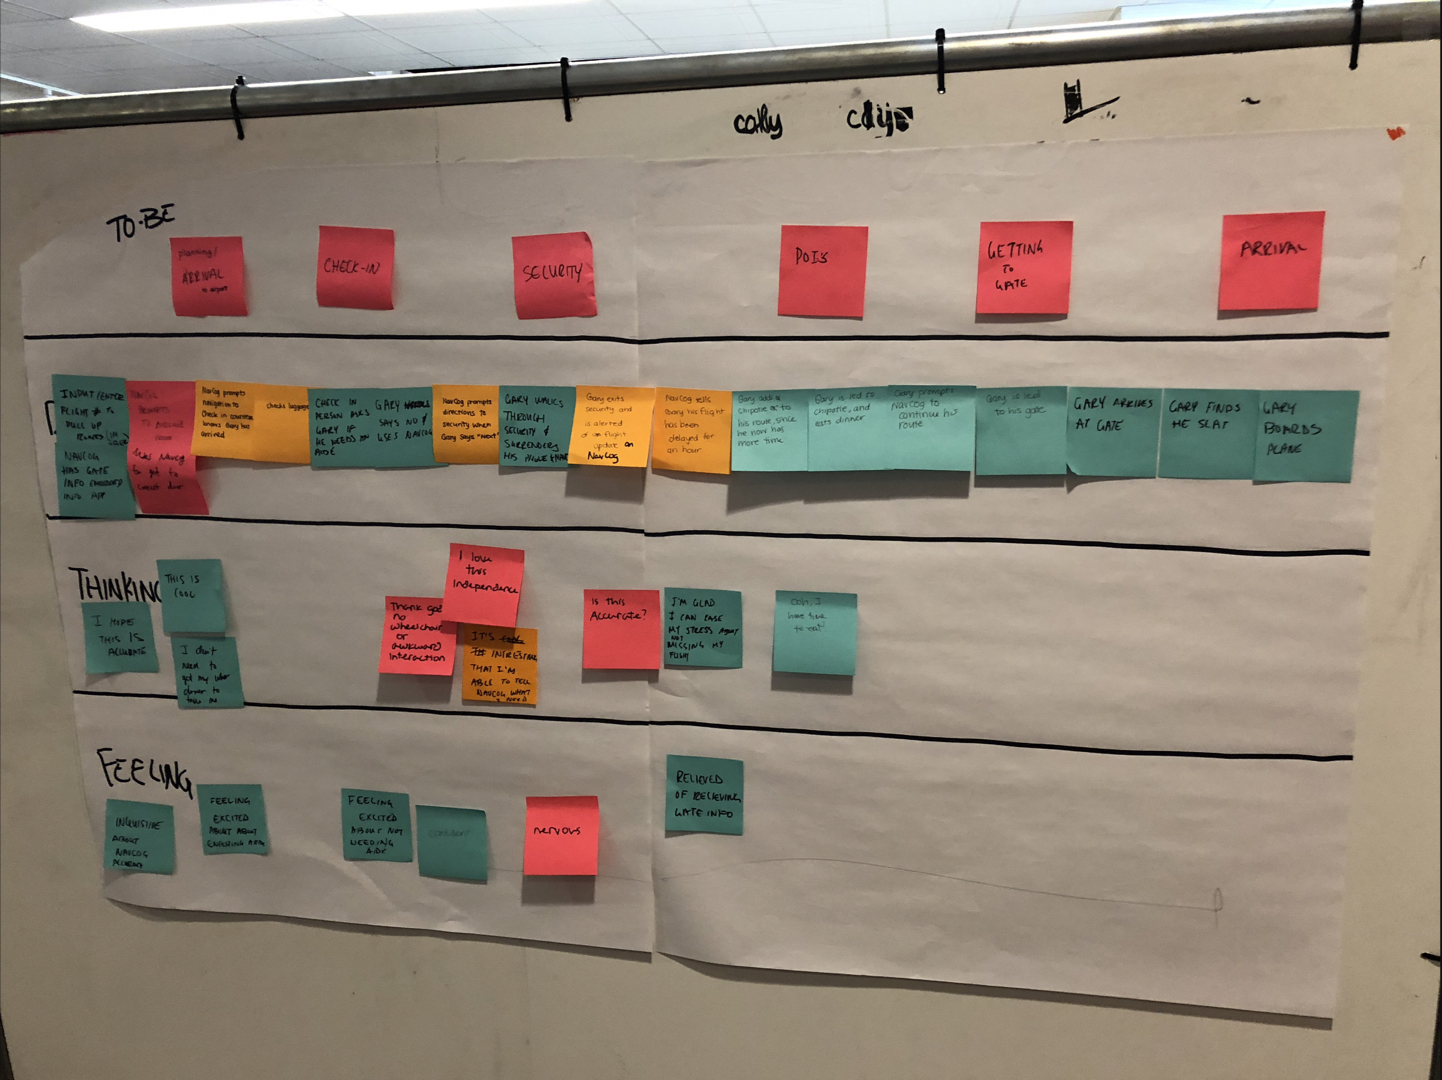 TO-BE
planning/
ARRIVAL
to airport
CHECK-IN
SECURITY
POIS
GETTING
TO
GATE
ARRIVAL
INPUT/ENTER
FLIGHT # TO
PULL UP
NAVCOG
HAS GATE
INFO EMBEDDED
INTO APP
NavCog
prompts
NavCog prompts
navigation to
Check in counter
knows Gary has
arrived
checks luggage
CHECK IN
PERSON ASKS
GARY IF
HE NEEDS AN
AIDE
GARY
SAYS NO &
USES NAVCOG
NavCog prompts
directions to
security when
Gary says "next"
GARY WALKS
THROUGH
SECURITY &
SURRENDERS
HIS PHONE
Gary exits
security and
is alerted
of flight
update on
NavCog
NavCog tells
Gary his flight
has been
delayed for
an hour
Gary adds a
chipotle to
his route since
he now has
more time
Gary is led to
chipotle, and
eats dinner
Gary prompts
NavCog to
continue his
route
Gary is led
to his gate
GARY ARRIVES
AT GATE
GARY FINDS
HE SEAT
GARY
BOARDS
PLANE
THINKING
THIS IS
COOL
I HOPE
THIS IS
ACCURATE
I don't
need to
get my uber
driver to
I love
this
independence
Thank god
no
wheelchair
or
awkward
interaction
IT'S
INTERESTING
THAT I'M
ABLE TO TELL
NAVCOG WHAT
I NEED
is this
Accurate?
I'M GLAD
I CAN EASE
MY STRESS ABOUT
NOT
MISSING MY
FLIGHT
Ooh, I
have time
to eat
FEELING
INQUISITIVE
ABOUT
NAVCOG
FEELING
EXCITED
ABOUT
FEELING
EXCITED
ABOUT NOT
NEEDING
AIDE
confident
nervous
RELIEVED
OF RECIEVING
GATE INFO